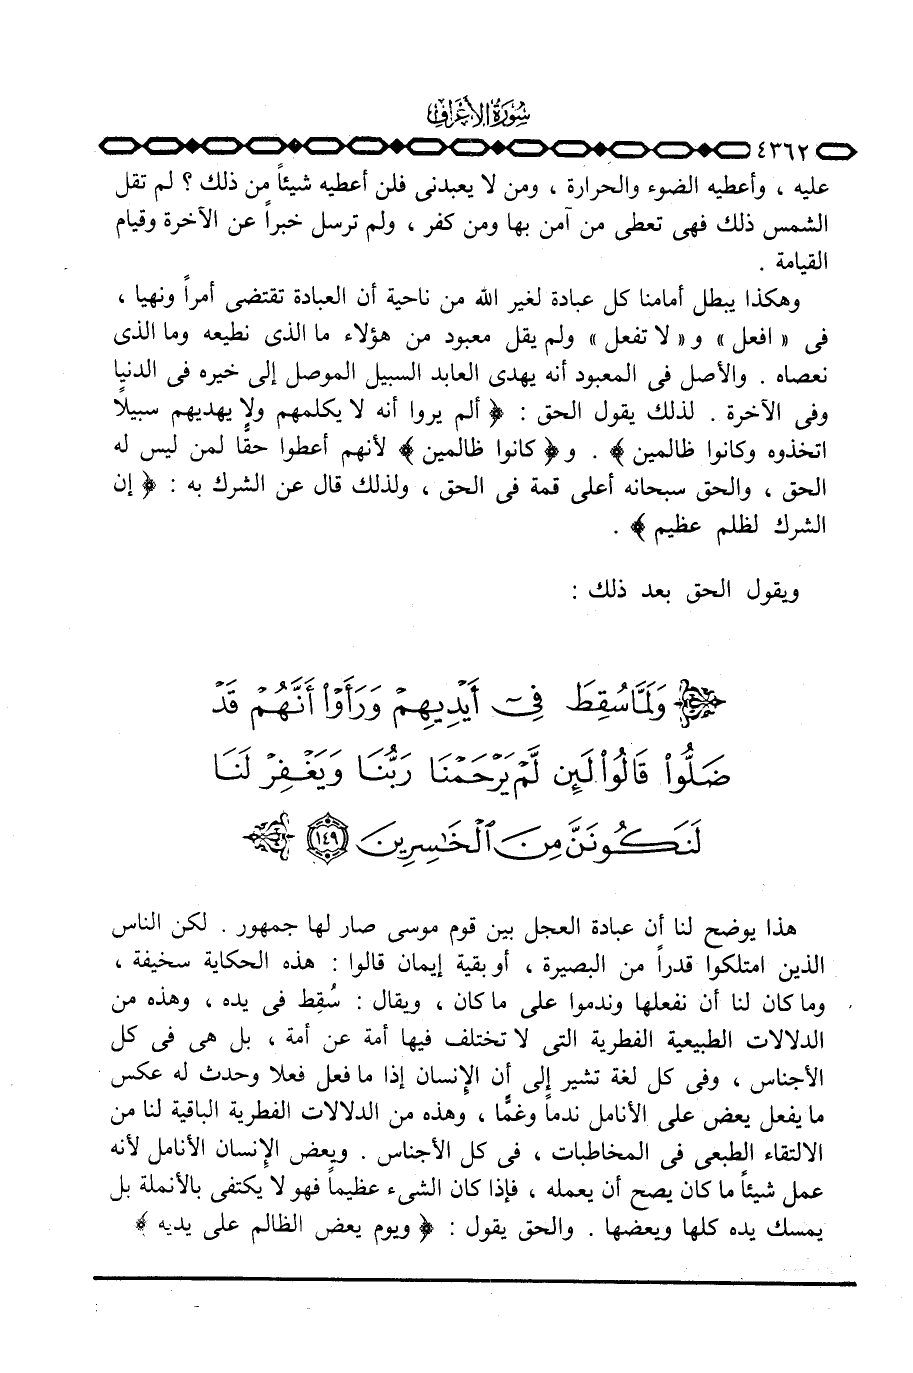 سُورَةُ الأَعْرَافِ
٤٣٦٢
عليه ، وأعطيه الضوء والحرارة ، ومن لا يعبدنى فلن أعطيه شيئاً من ذلك ؟ لم تقل
الشمس ذلك فهى تعطى من آمن بها ومن كفر ، ولم ترسل خبراً عن الآخرة وقيام
القيامة .
وهكذا يبطل أمامنا كل عبادة لغير الله من ناحية أن العبادة تقتضى أمراً ونهيا ،
فى « افعل » و « لا تفعل » ولم يقل معبود من هؤلاء ما الذى نطيعه وما الذى
نعصاه . والأصل فى المعبود أنه يهدى العابد السبيل الموصل إلى خيره فى الدنيا
وفى الآخرة . لذلك يقول الحق : ﴿ ألم يروا أنه لا يكلمهم ولا يهديهم سبيلاً
اتخذوه وكانوا ظالمين ﴾ . و ﴿ كانوا ظالمين ﴾ لأنهم أعطوا حقًّا لمن ليس له
الحق ، والحق سبحانه أعلى قمة فى الحق ، ولذلك قال عن الشرك به : ﴿ إن
الشرك لظلم عظيم ﴾ .
ويقول الحق بعد ذلك :
﴿ وَلَمَّا سُقِطَ فِىٓ أَيْدِيهِمْ وَرَأَوْا۟ أَنَّهُمْ قَدْ
ضَلُّوا۟ قَالُوا۟ لَئِن لَّمْ يَرْحَمْنَا رَبُّنَا وَيَغْفِرْ لَنَا
لَنَكُونَنَّ مِنَ ٱلْخَٰسِرِينَ ١٤٩ ﴾
هذا يوضح لنا أن عبادة العجل بين قوم موسى صار لها جمهور . لكن الناس
الذين امتلكوا قدراً من البصيرة ، أو بقية إيمان قالوا : هذه الحكاية سخيفة ،
وما كان لنا أن نفعلها وندموا على ما كان ، ويقال : سُقِط فى يده ، وهذه من
الدلالات الطبيعية الفطرية التى لا تختلف فيها أمة عن أمة ، بل هى فى كل
الأجناس ، وفى كل لغة تشير إلى أن الإنسان إذا ما فعل فعلا وحدث له عكس
ما يفعل يعض على الأنامل ندماً وغمًّا ، وهذه من الدلالات الفطرية الباقية لنا من
الالتقاء الطبعى فى المخاطبات ، فى كل الأجناس . ويعض الإنسان الأنامل لأنه
عمل شيئاً ما كان يصح أن يعمله ، فإذا كان الشىء عظيماً فهو لا يكتفى بالأنملة بل
يمسك يده كلها ويعضها . والحق يقول : ﴿ ويوم يعض الظالم على يديه ﴾